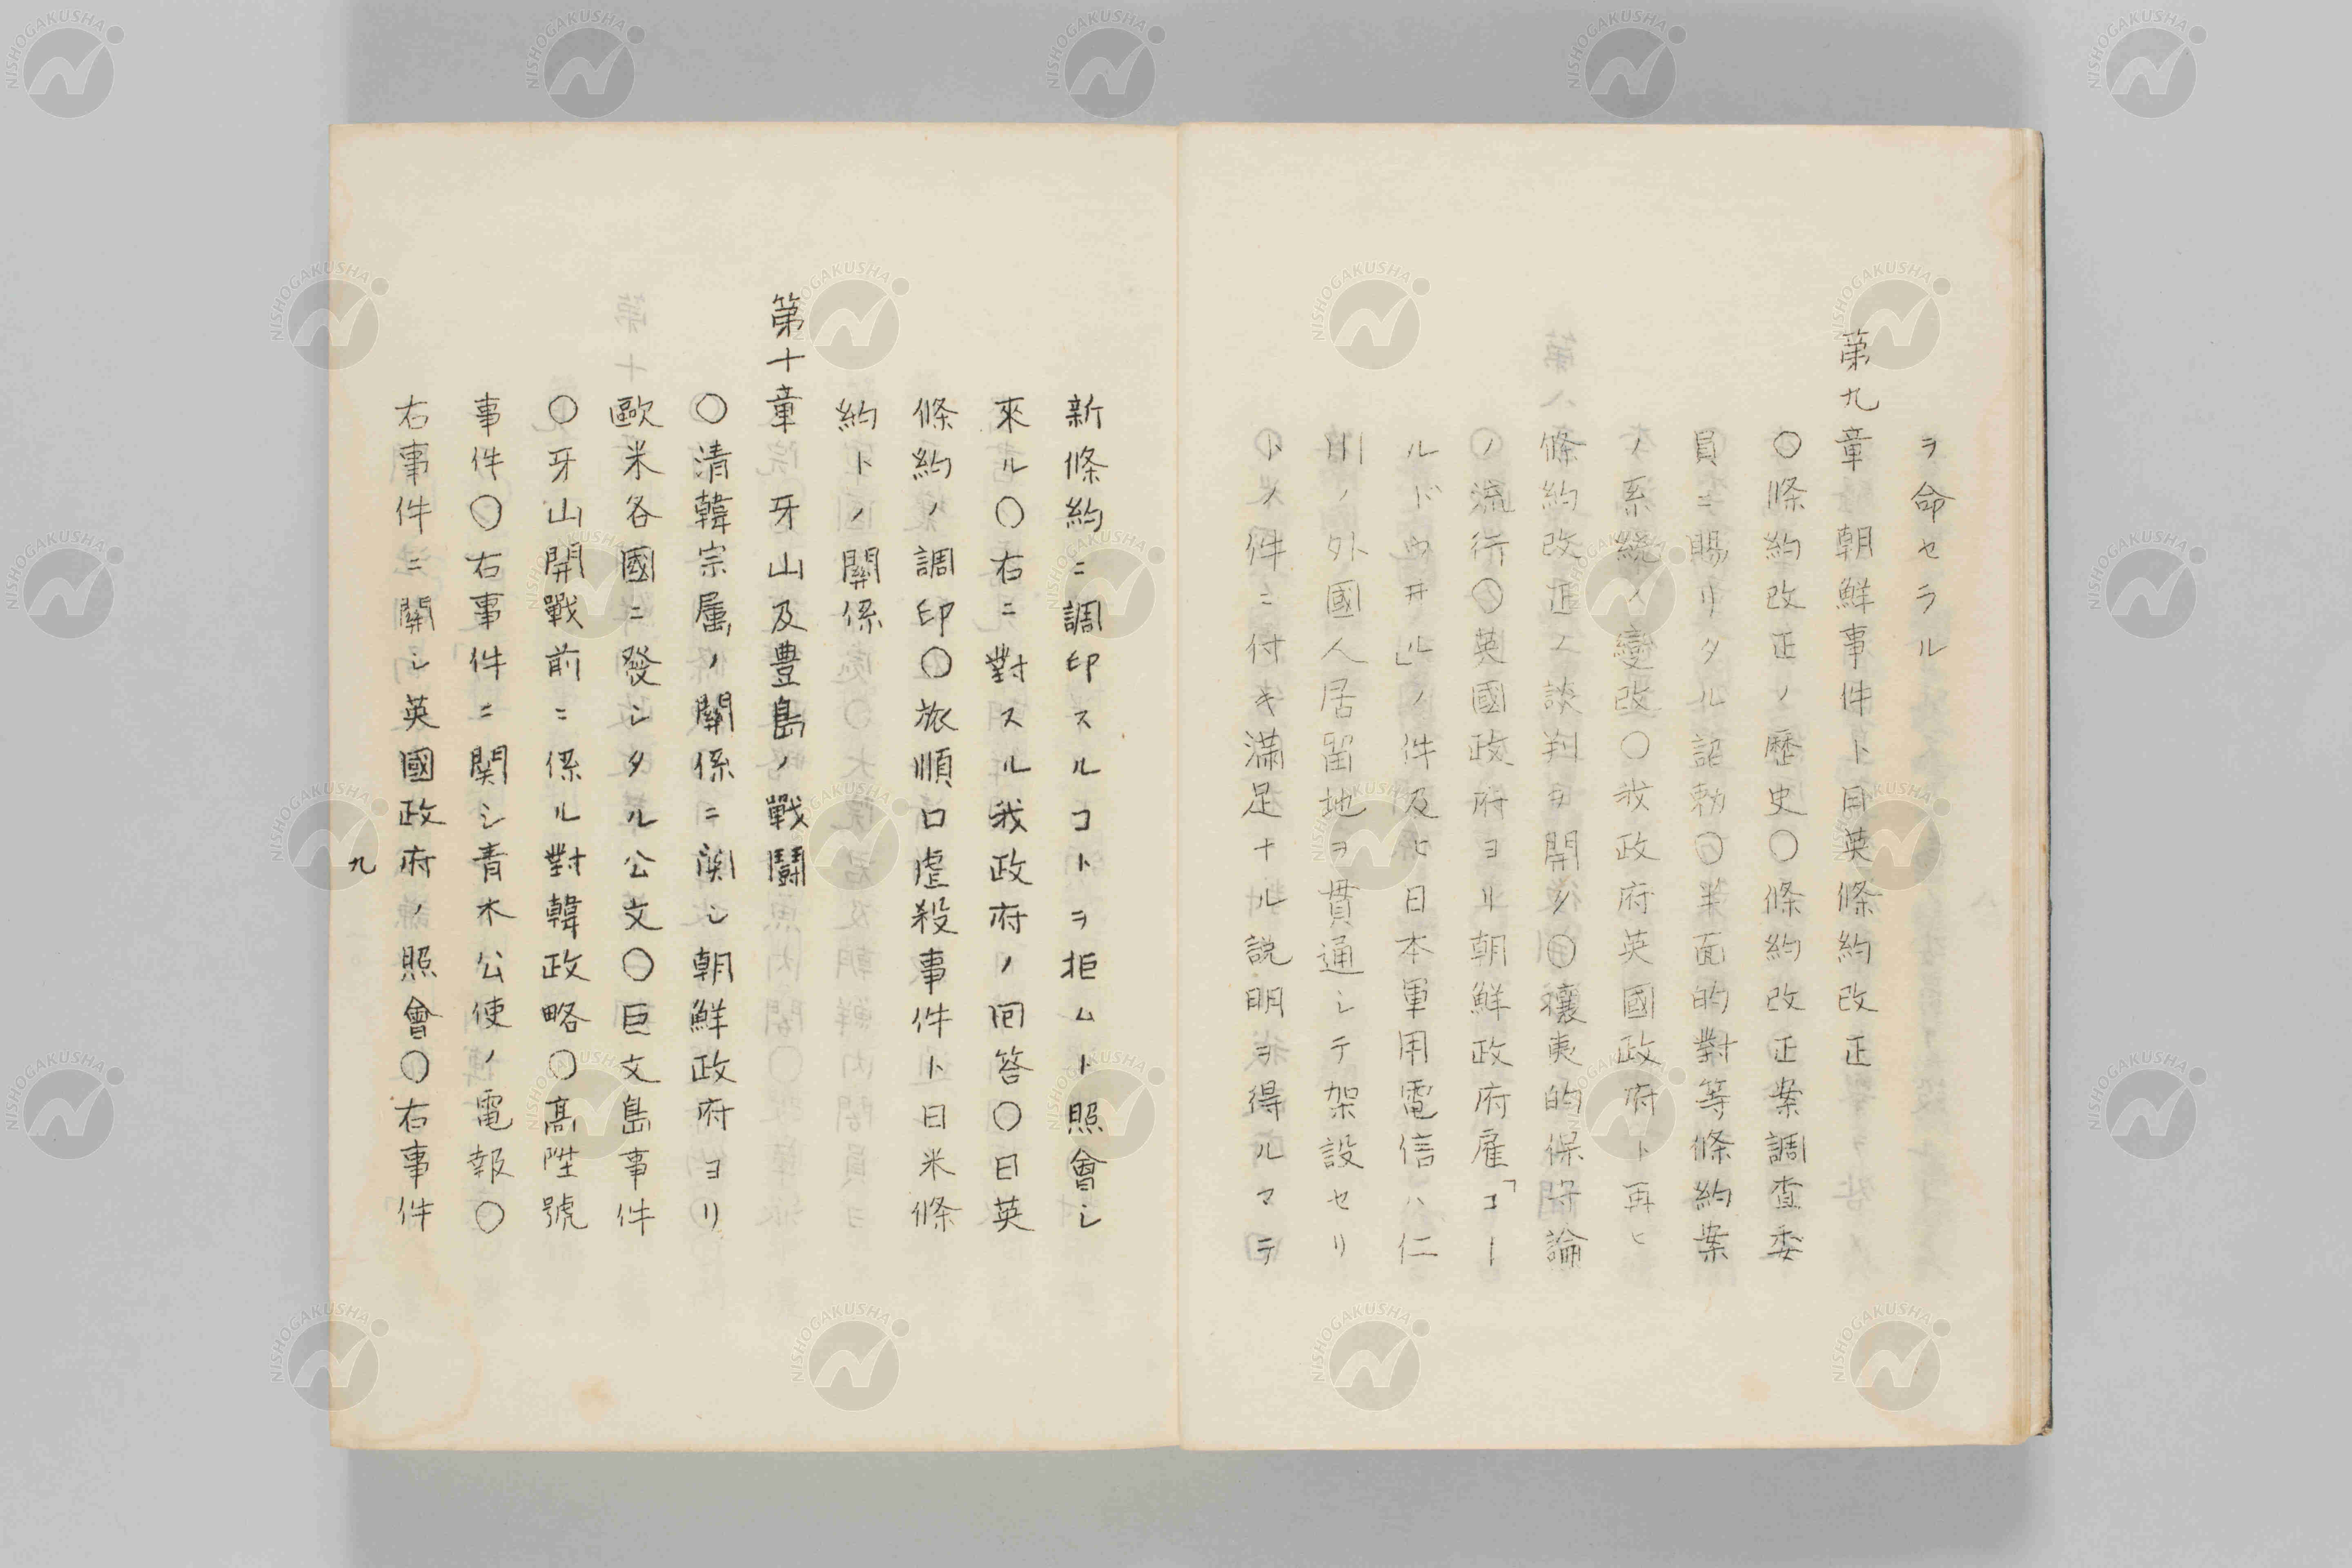 ヲ命セラル
第九章 朝鮮事件ト日英條約改正
〇條約改正ノ歷史〇條約改正案調查委
員ニ賜リタル詔勅〇半面的對等條約案
ノ系統ノ變改〇我政府英國政府ト再ヒ
條約改正ノ談判ヲ開ク〇攘夷的保守論
ノ流行〇英國政府ヨリ朝鮮政府雇「コー
ルドウ井ル」ノ件及ヒ日本軍用電信ハ仁
川ノ外國人居留地ヲ貫通シテ架設セリ
トノ件ニ付キ滿足ナル説明ヲ得ルマテ
新條約ニ調印スルコトヲ拒ムト照會シ
來ル〇右ニ對スル我政府ノ囘答〇日英
條約ノ調印〇旅順口虐殺事件ト日米條
約トノ關係
第十章 牙山及豊島ノ戰鬪
〇清韓宗属ノ關係ニ関シ朝鮮政府ヨリ
歐米各國ニ發シタル公文〇巨文島事件
〇牙山開戰前ニ係ル對韓政略〇高陞號
事件〇右事件ニ関シ青木公使ノ電報〇
右事件ニ關シ英國政府ノ照會〇右事件
九
NISHOGAKUSHA